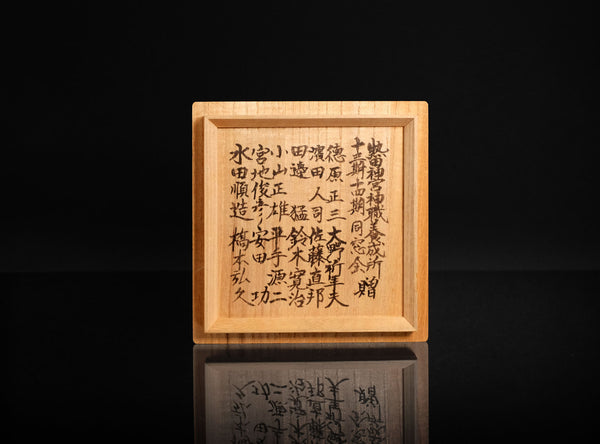 熱田神宮神職養成所
十四期同窓会 贈
徳原正三 大野
濱田人司 佐藤直邦
田邊 猛 鈴木寛治
小山正雄 平手源二
宮地俊彦 安田 功
永田順造 橋本弘久